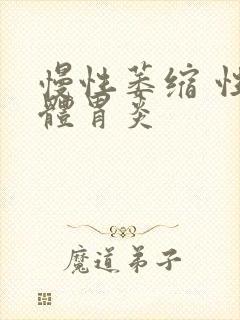 慢性萎缩 性
體胃炎
魔道弟子